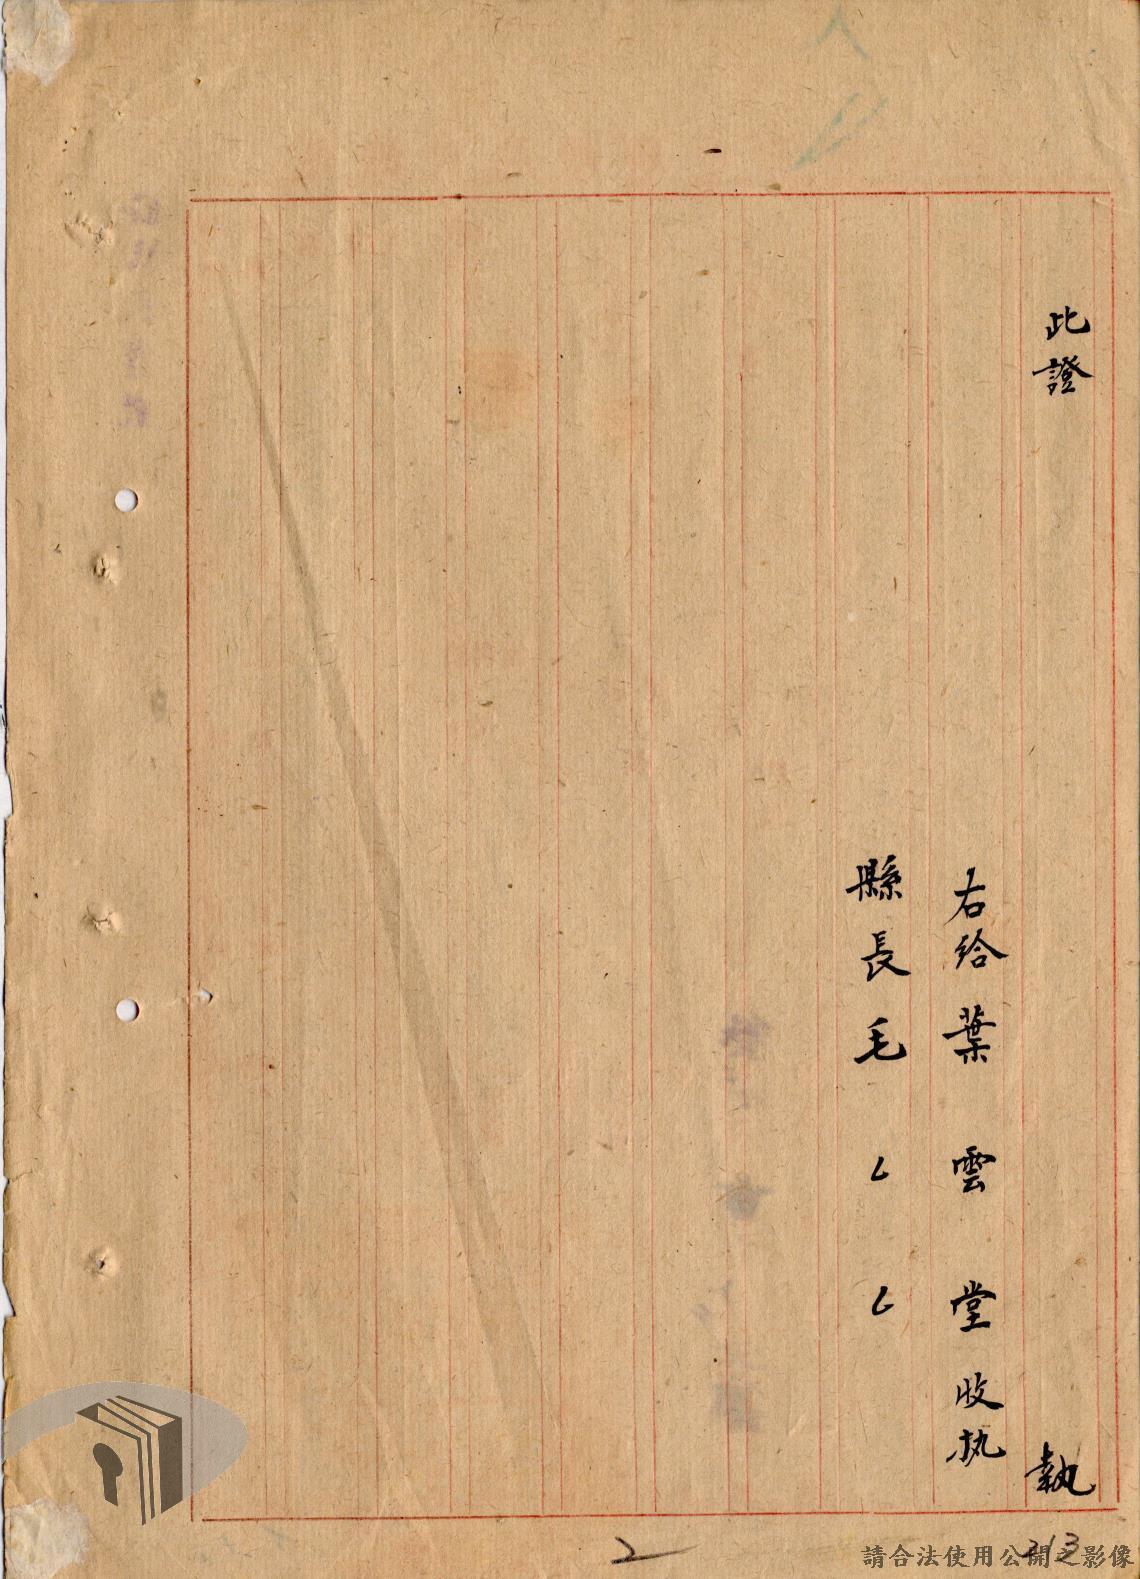 此證
執
右給葉雲堂收执
縣長毛
2
213
請合法使用公開之影像